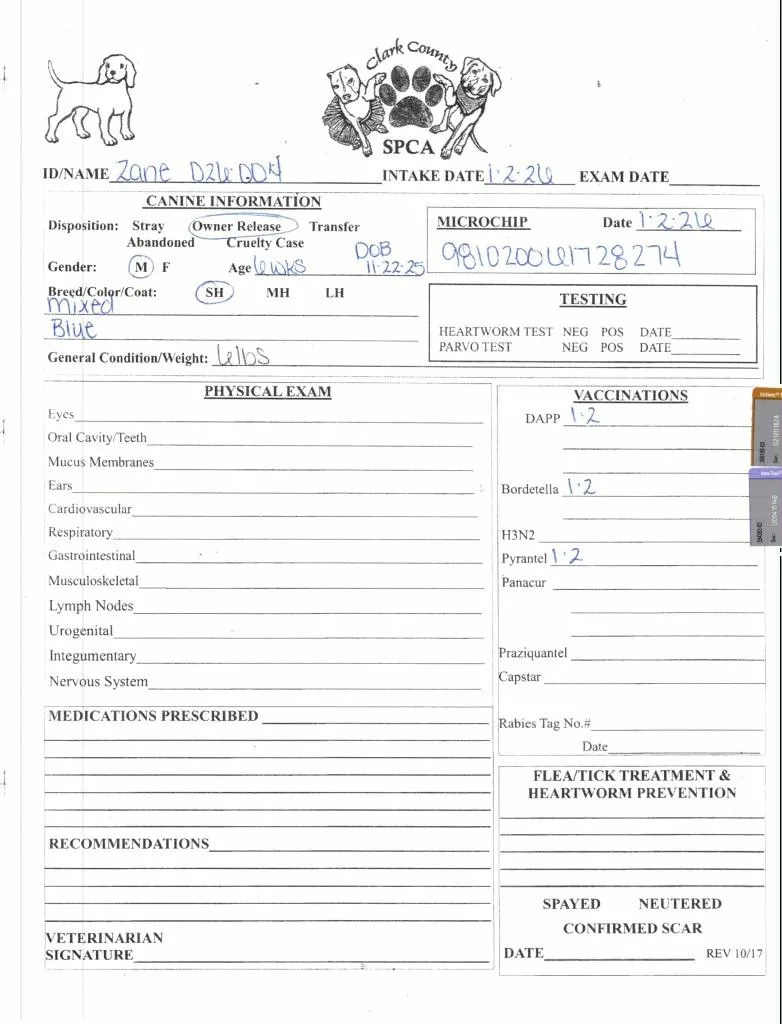 Clark County
SPCA
ID/NAME Zane D26-004 INTAKE DATE 1-2-26 EXAM DATE
CANINE INFORMATION
Disposition: Stray Owner Release Transfer
Abandoned Cruelty Case
Gender: M F Age 6wks DOB 11-22-25
Breed/Color/Coat: SH MH LH
Mixed
Blue
General Condition/Weight: 6lbs
MICROCHIP Date 1-2-26
981020061728274
TESTING
HEARTWORM TEST NEG POS DATE
PARVO TEST NEG POS DATE
PHYSICAL EXAM
Eyes
Oral Cavity/Teeth
Mucus Membranes
Ears
Cardiovascular
Respiratory
Gastrointestinal
Musculoskeletal
Lymph Nodes
Urogenital
Integumentary
Nervous System
VACCINATIONS
DAPP 1-2
Bordetella 1-2
H3N2
Pyrantel 1-2
Panacur
Praziquantel
Capstar
Rabies Tag No.#
Date
MEDICATIONS PRESCRIBED
RECOMMENDATIONS
VETERINARIAN
SIGNATURE
FLEA/TICK TREATMENT &
HEARTWORM PREVENTION
SPAYED NEUTERED
CONFIRMED SCAR
DATE REV 10/17